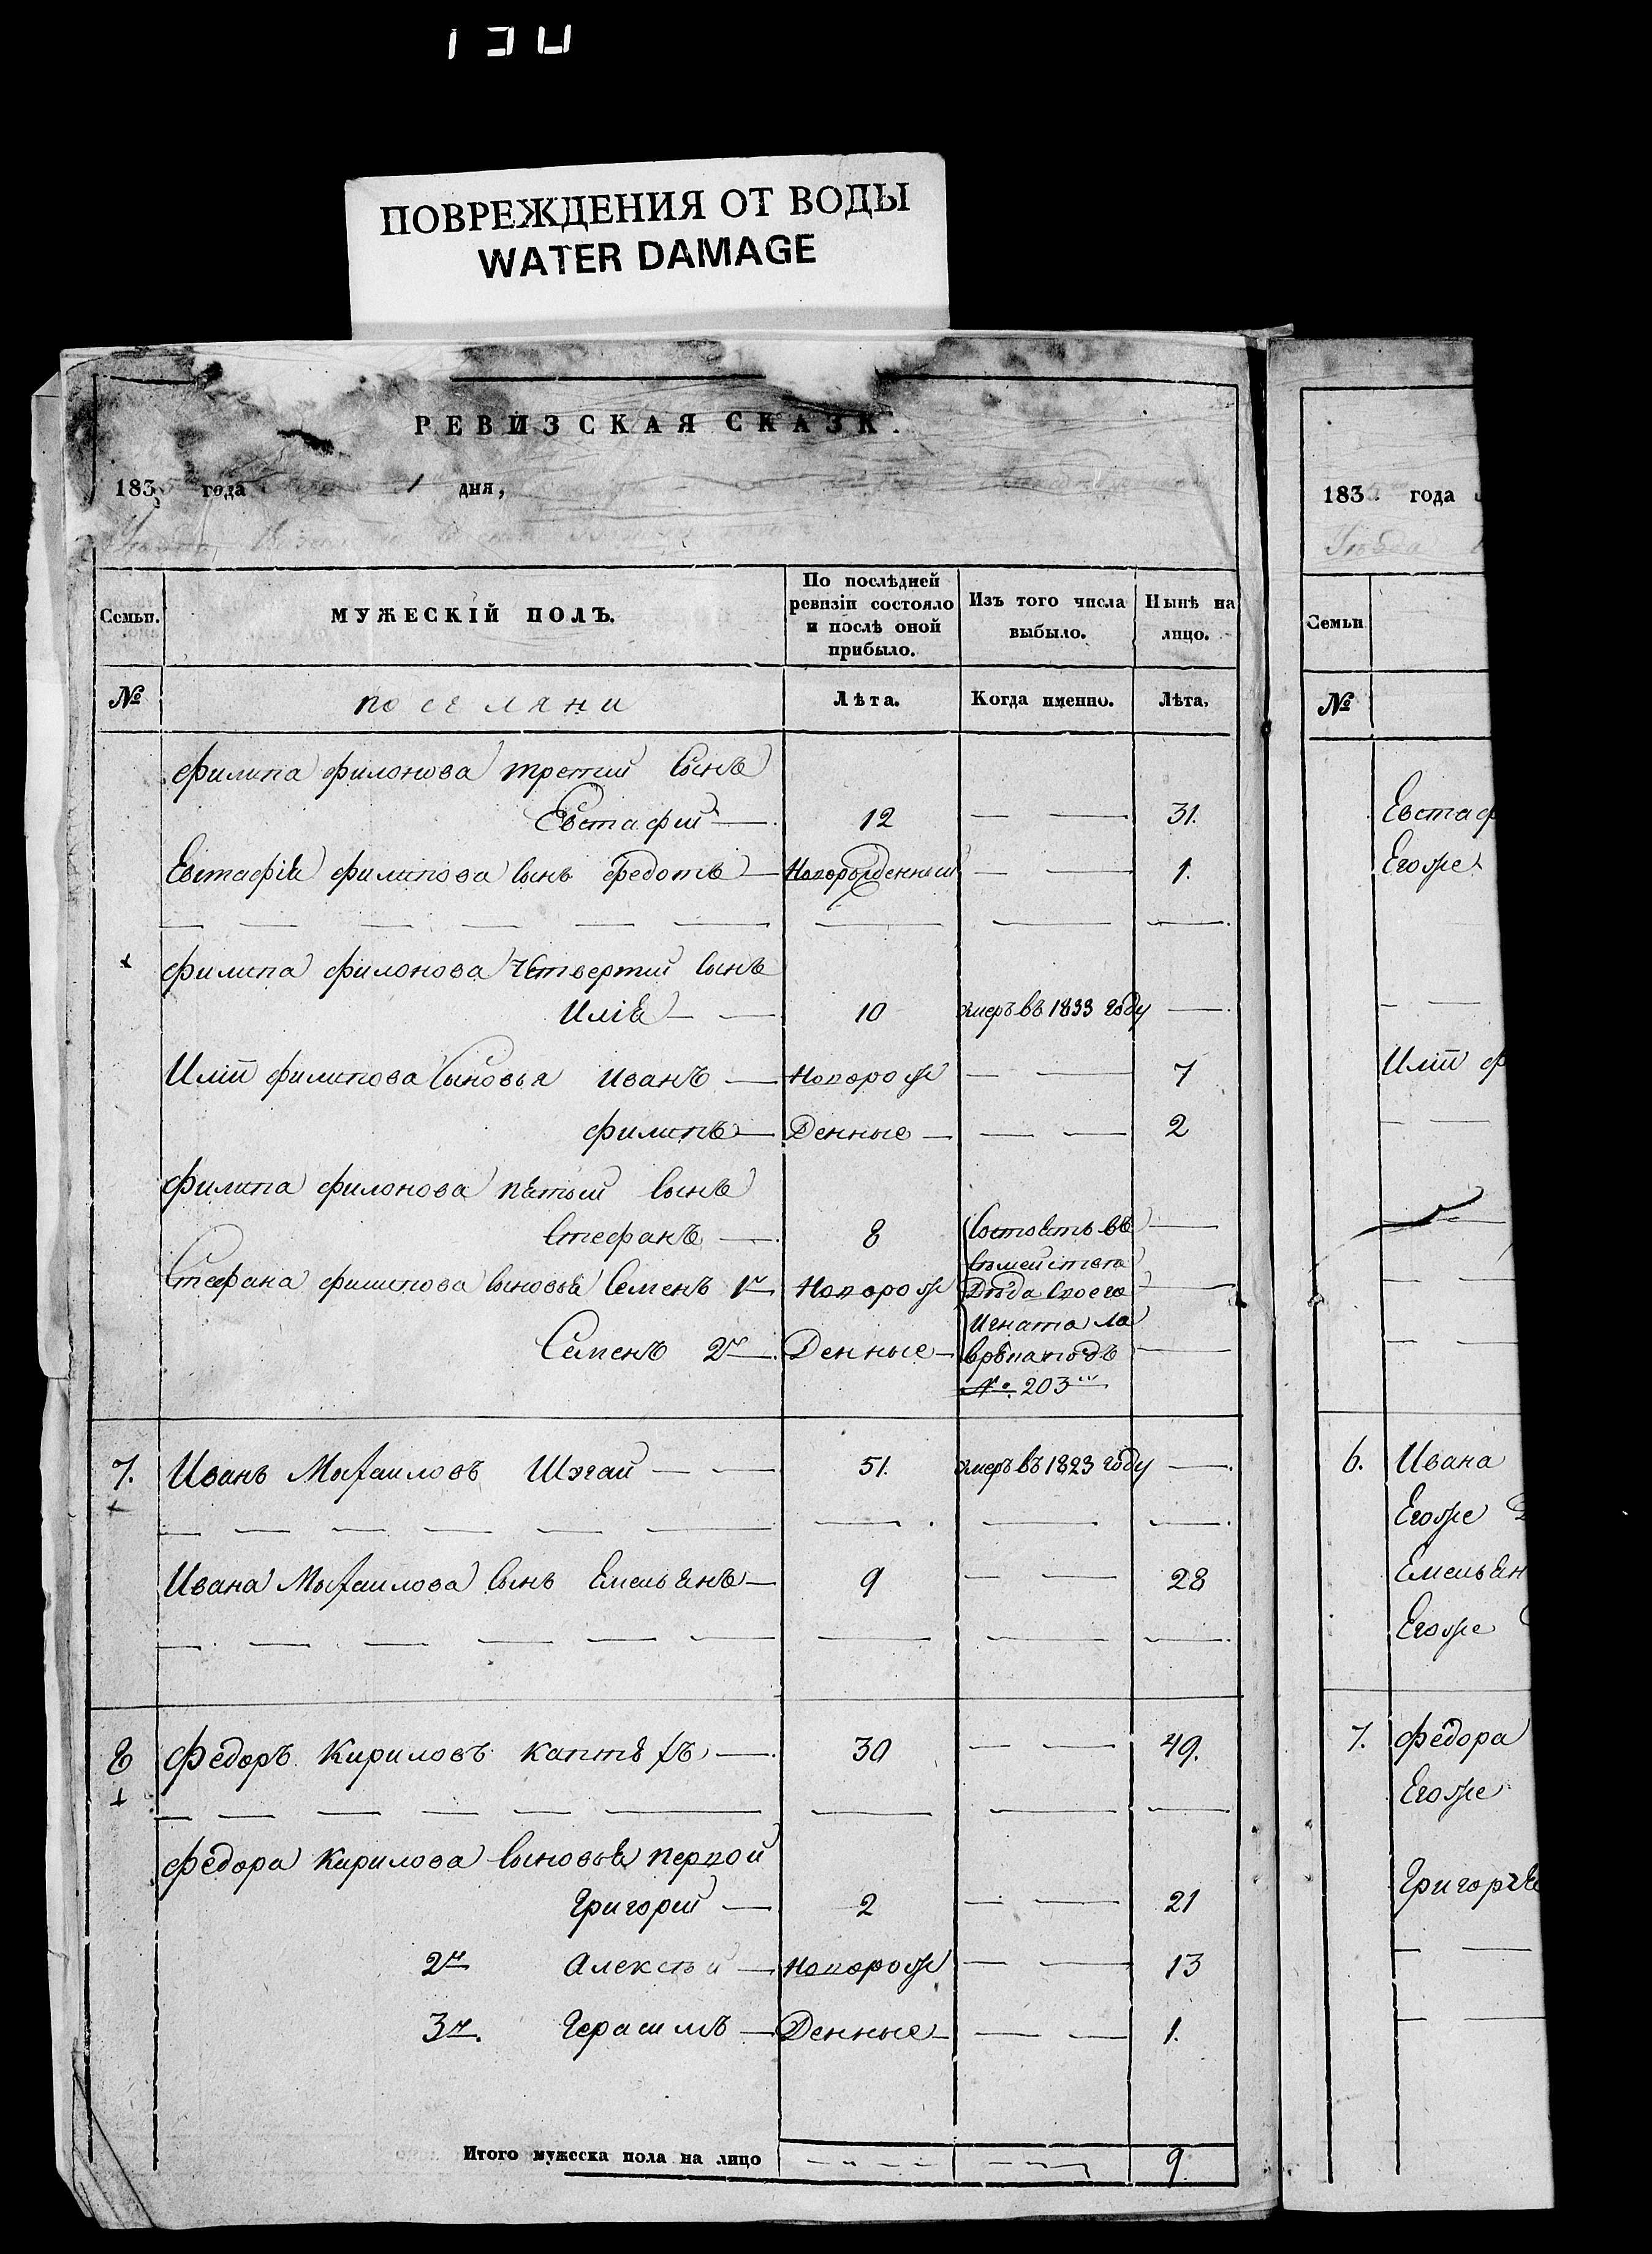 ПОВРЕЖДЕНИЯ ОТ ВОДЫ
WATER DAMAGE
РЕВИЗСКАЯ СКАЗК
183 года 1 дня,
Семьи. МУЖЕСКІЙ ПОЛЪ. По послѣдней ревизіи состояло и послѣ оной прибыло. Изъ того числа выбыло. Нынѣ на лицо.
№ поселяни Лѣта. Когда именно. Лѣта.
Филипа Филонова третий сынъ
Евстафий — 12 — — 31.
Евстафія Филипова сынъ Федотъ — Новорожденный — — 1.
Филипа Филонова Четвертий сынъ
Илія — — 10 умеръ въ 1833 году —
Иліи Филипова Сыновья Иванъ — Новорож — — 7
Филипъ — Денные — — — 2
Филипа Филонова пятый сынъ
Стефанъ — 8 Состоятъ въ —
семействѣ
Стефана Филипова сыновья Семенъ 1й Новорож Дѣда своего —
Игната Ла
Семенъ 2й Денные — врѣна подъ —
№ 203
7. Иванъ Михаиловъ Шэгай — — 51. умеръ въ 1823 году —
Ивана Михаилова сынъ Емельянъ — 9 — — 28
8 Федоръ Кириловъ — 30 — — 49.
Федора Кирилова сыновья первой
Григорий — 2 — — 21
2й Алексѣй — Новорож — — 13
3й Герасимъ — Денные — — — 1.
Итого мужеска пола на лицо 9
183 года
Уѣзда
Семьи
№
Евстаф
Егоже
Иліи Ф
6. Ивана
Егоже
Емельян
Егоже
7. Федора
Егоже
Григорія